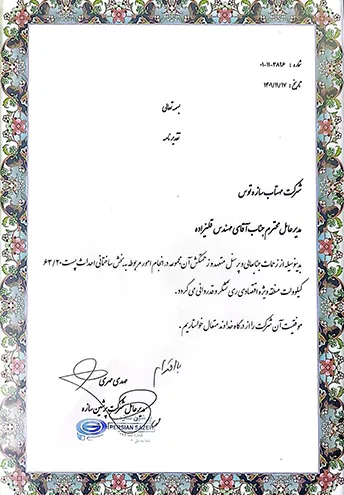 شماره : ۰۱-۱۱-۰۲۸۹۶
تاریخ : ۱۴۰۱/۱۱/۱۷
بسمه تعالی
تقدیرنامه
شرکت مهتاب سازه توس
مدیرعامل محترم جناب آقای مهندس قلیزاده
بدینوسیله از زحمات جنابعالی و پرسنل متعهد و زحمتکش آن مجموعه در انجام امور مربوطه به بخش ساختمانی احداث پست ۶۳/۲۰
کیلوولت منطقه ویژه اقتصادی ری تشکر و قدردانی می گردد.
موفقیت آن شرکت را از درگاه خداوند متعال خواستاریم.
با احترام
مهدی مهری
مدیرعامل شرکت پرشین سازه
PERSIAN SAZEH